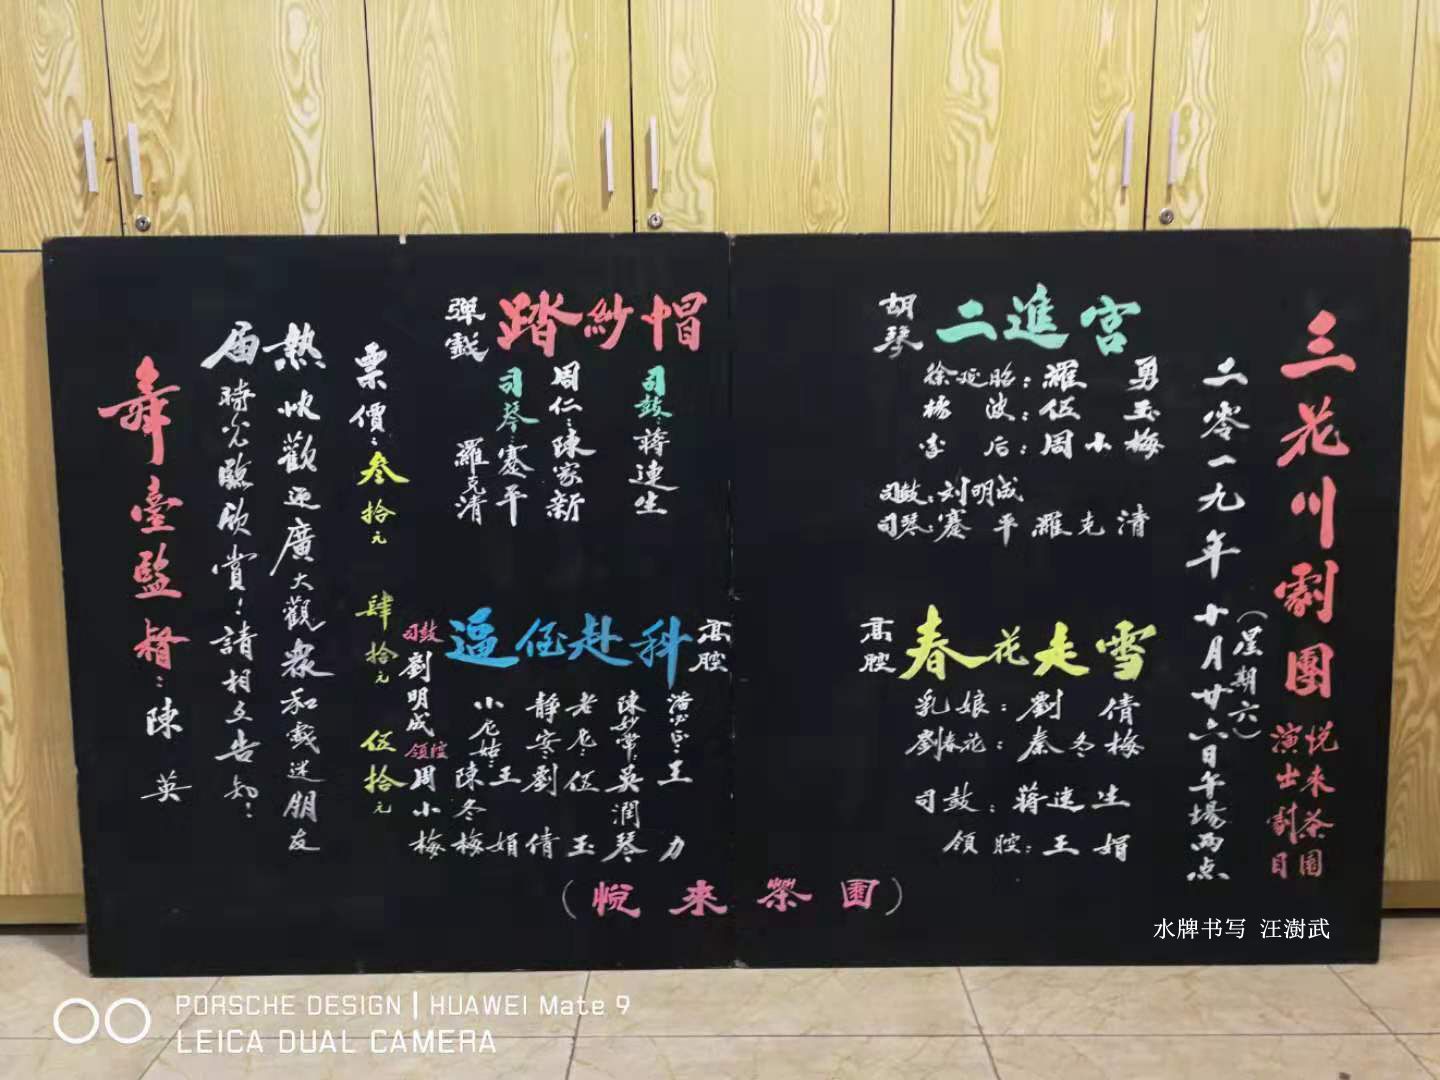 三花川劇團
悦来茶園
演出劇目
二零一九年十月廿六日午場两点
(星期六)
胡琴
二進宮
徐延昭：羅勇
杨波：伍玉
李后：周小梅
司鼓：刘明成
司琴：蹇平 羅克清
高腔
春花走雪
乳娘：劉倩
劉春花：秦冬梅
司鼓：蒋连生
領腔：王娟
弹戯
踏紗帽
司鼓：蒋連生
周仁：陳家新
司琴：蹇平
羅克清
高腔
逼侄赴科
潘必正：王力
陳妙常：吳潤琴
老尼：伍玉
静安：劉倩
小尼姑：王娟
陳冬梅
司鼓
劉明成
領腔
周小梅
票價：叁拾元 肆拾元 伍拾元
熱忱歡迎廣大觀衆和戏迷朋友
届時光臨欣賞！請相互告知！
舞臺監督：陳英
(悅来茶園)
水牌书写 汪澍武
PORSCHE DESIGN | HUAWEI Mate 9
LEICA DUAL CAMERA